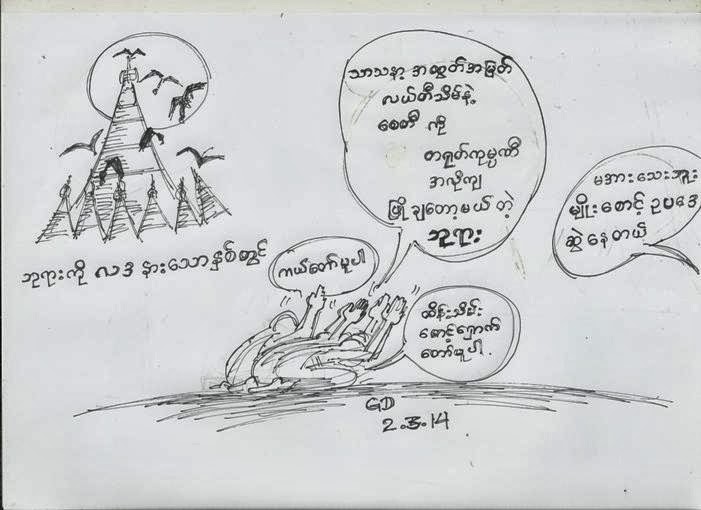 သာသနာ့ အထွတ်အမြတ်
လယ်တီသိမ်နဲ့
စေတီ ကို
တရုတ်ကုမ္ပဏီ
အလိုကျ
ဖြိုချတော့မယ် တဲ့
ဘုရား
မအားသေးဘူး
မျိုးစောင့် ဥပဒေ
ဆွဲနေတယ်
ဘုရားကို လဒ နားသောနှစ်တွင်
ကယ်တော်မူပါ
ထိန်းသိမ်း
စောင့်ရှောက်
တော်မူပါ.
GD
2.3.14